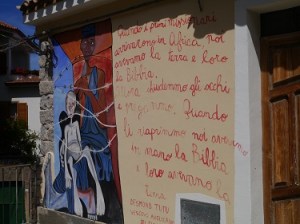 Quando i primi missionari
arrivarono in Africa, noi
avevamo la terra e loro
la Bibbia.
chiudemmo gli occhi
e Quando
li riaprimmo noi avevamo
in mano la Bibbia
e loro avevano la
terra